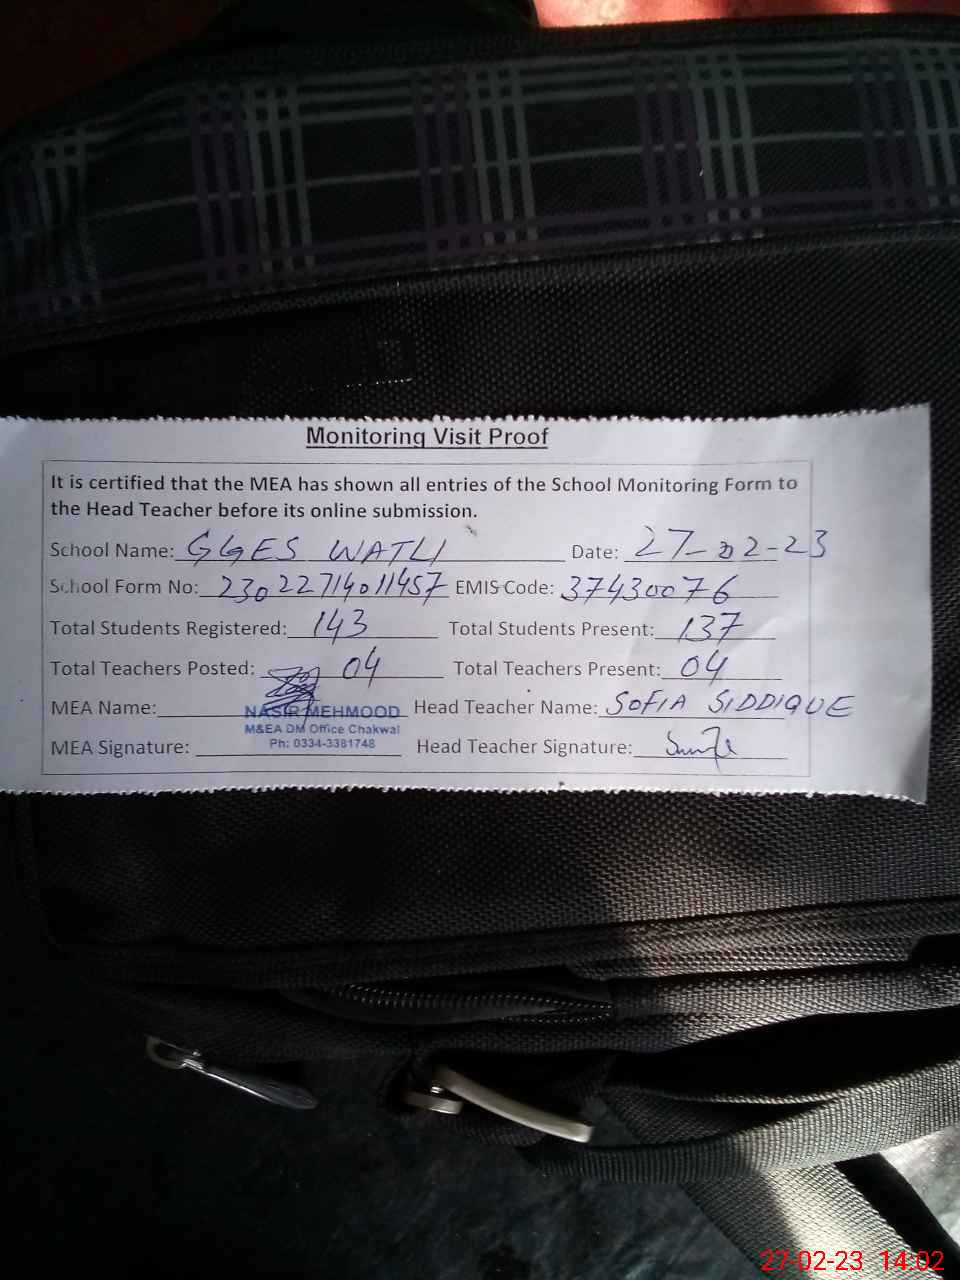 Monitoring Visit Proof
It is certified that the MEA has shown all entries of the School Monitoring Form to
the Head Teacher before its online submission.
School Name: GGES WATLI Date: 27-02-23
School Form No: 23022714011457 EMIS Code: 37430076
Total Students Registered: 143 Total Students Present: 137
Total Teachers Posted: 04 Total Teachers Present: 04
MEA Name: NASIR MEHMOOD Head Teacher Name: SOFIA SIDDIQUE
M&EA DM Office Chakwal
MEA Signature: Ph: 0334-3381748 Head Teacher Signature:
27-02-23 14:02